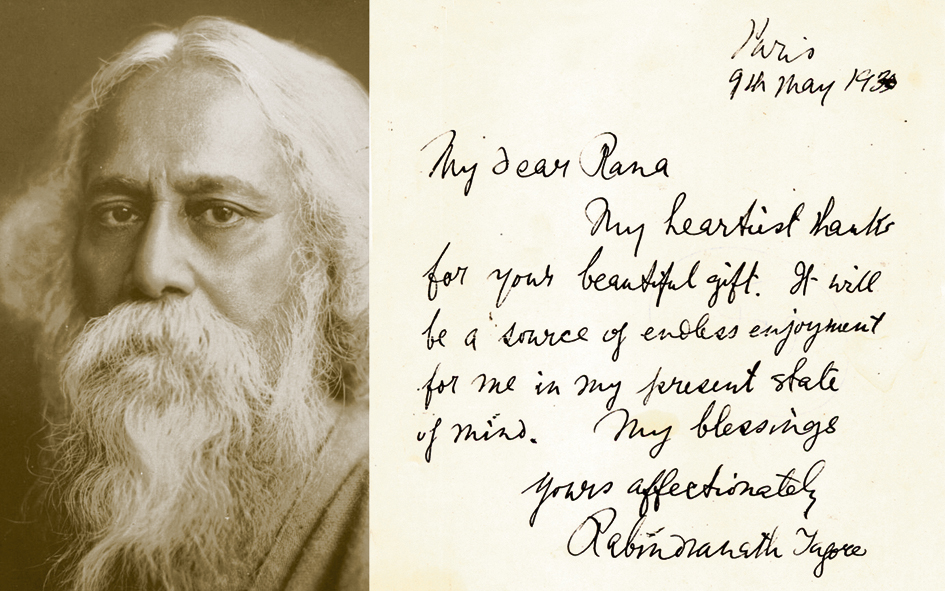 Paris
9th May 1930
My dear Rana
My heartiest thanks
for your beautiful gift. It will
be a source of endless enjoyment
for me in my present state
of mind. My blessings
yours affectionately
Rabindranath Tagore